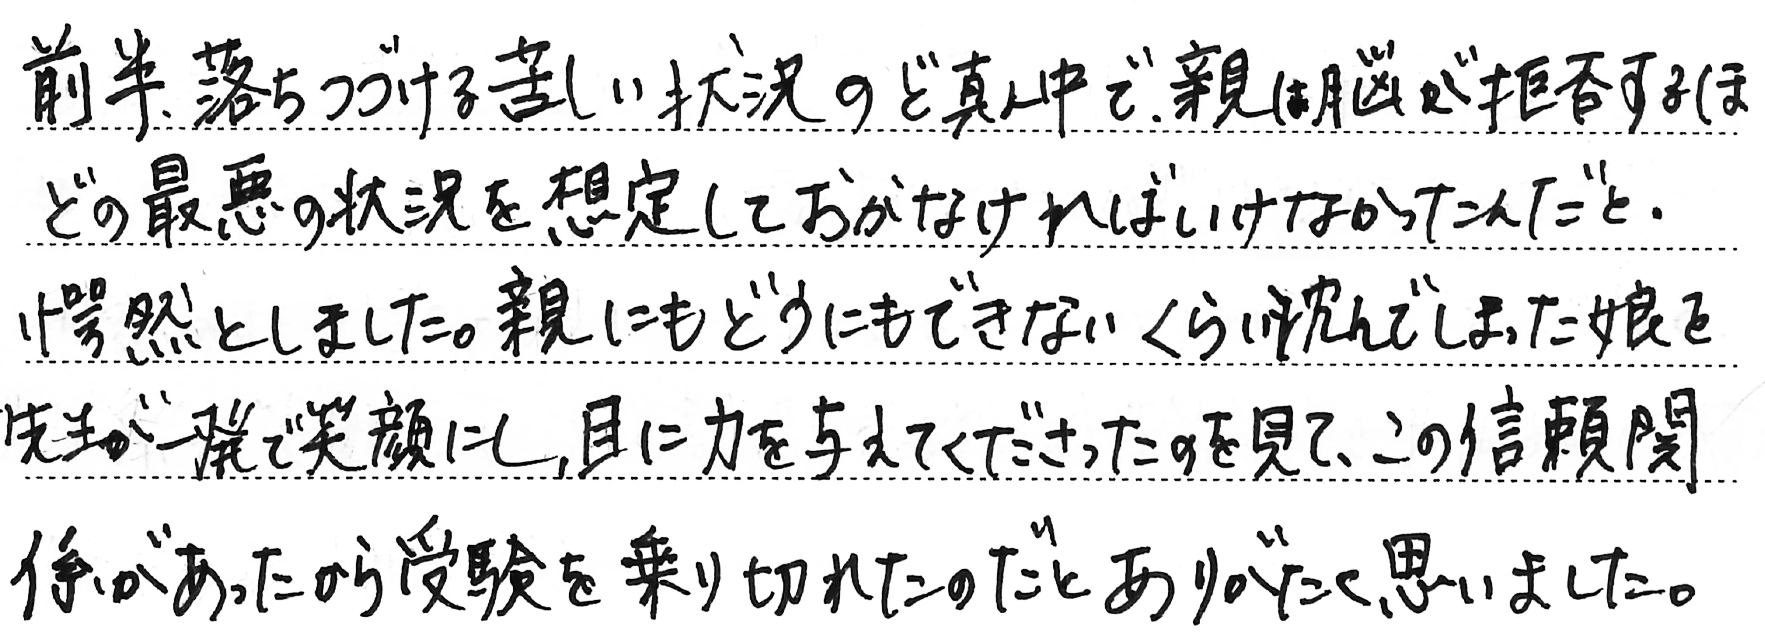 前半、落ちつづける苦しい状況のど真ん中で、親は脳が拒否するほ
どの最悪の状況を想定しておかなければいけなかったんだと、
愕然としました。親にもどうにもできないくらい沈んでしまった娘を
先生が一発で笑顔にし、目に力を与えてくださったのを見て、この信頼関
係があったから受験を乗り切れたのだとありがたく思いました。